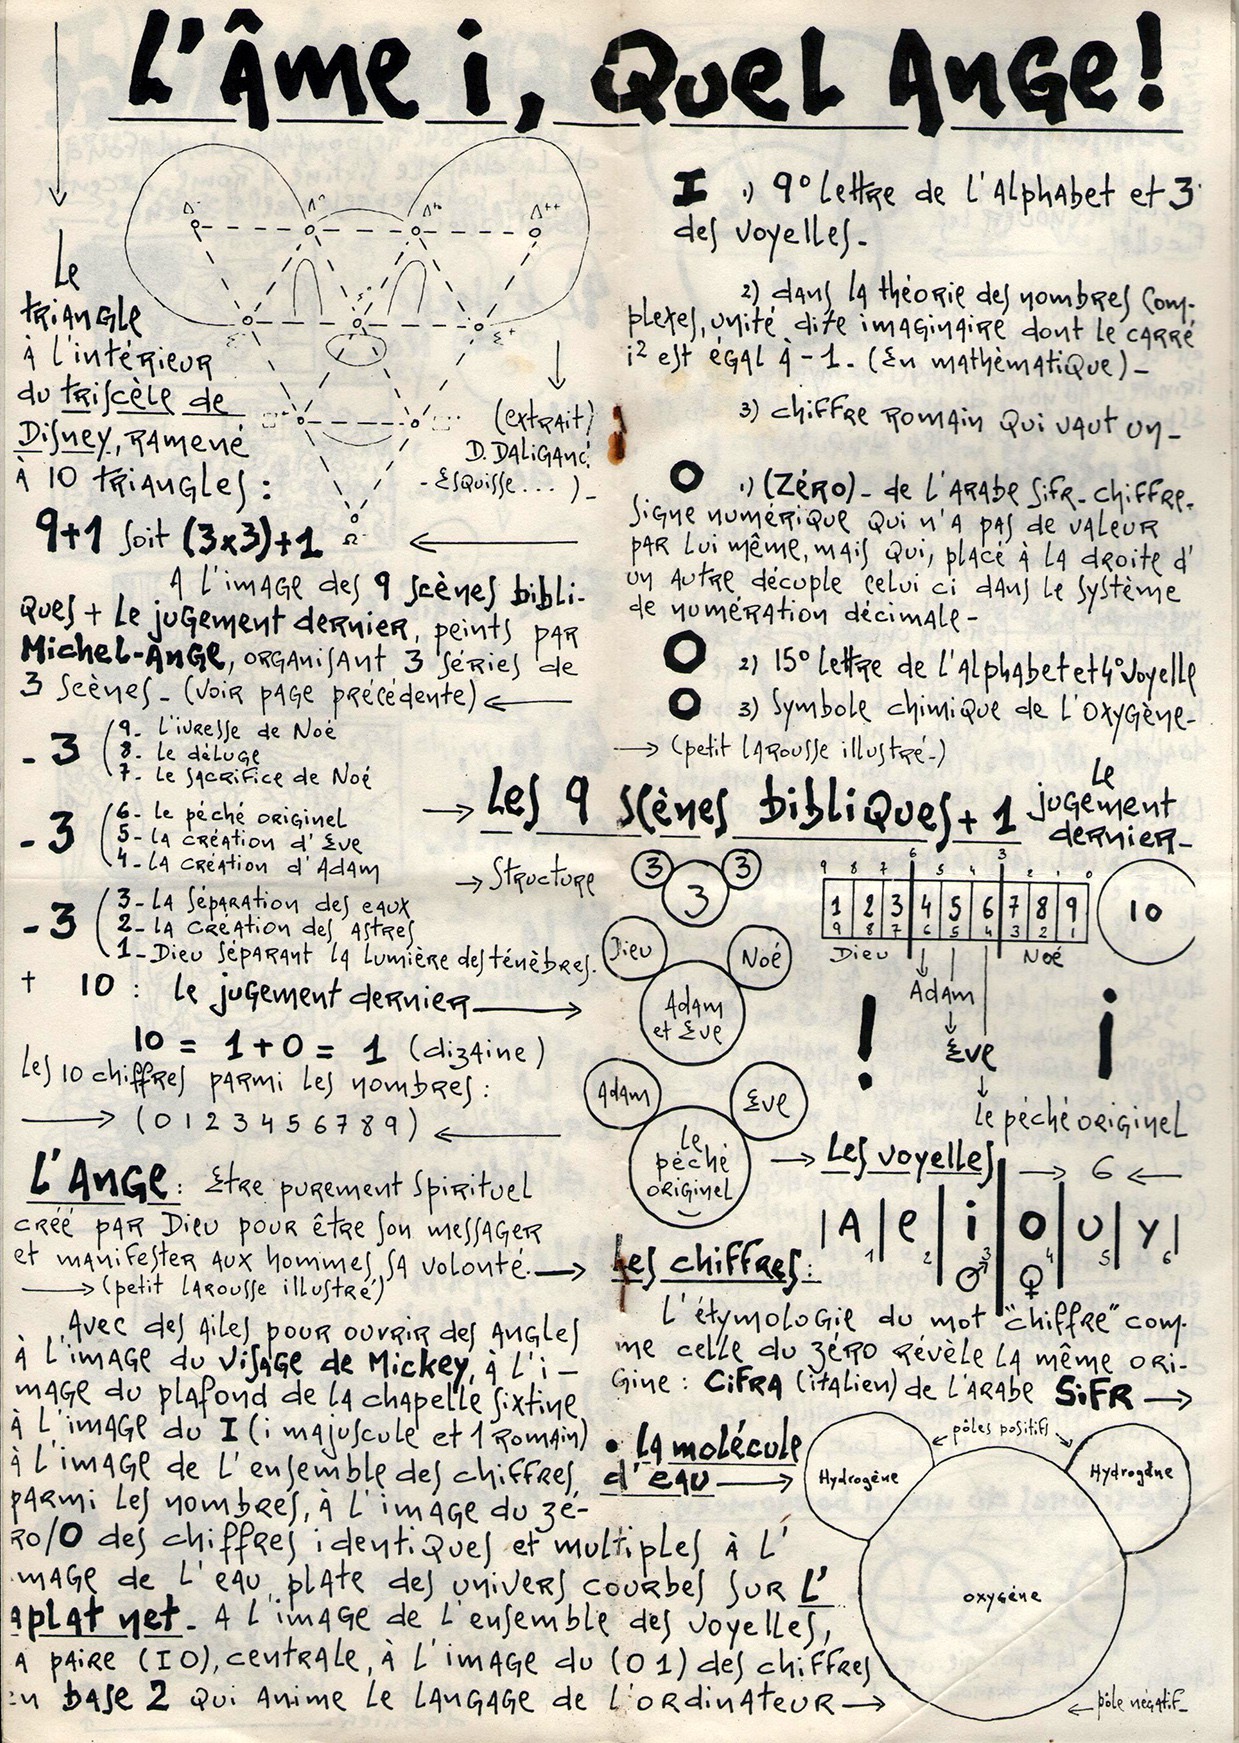 L'Âme i, Quel Ange!
Le
triangle
à l'intérieur
du triscèle de
Disney, ramené
à 10 triangles :
9+1 soit (3x3)+1
(extrait)
D. DALIGAND
- Esquisse... )-
A l'image des 9 scènes bibli-
ques + Le jugement dernier, peints par
Michel-Ange, organisant 3 séries de
3 scènes - (voir page précédente) ←
- 3 ( 9- L'ivresse de Noé
8- Le déluge
7- Le sacrifice de Noé
- 3 ( 6- Le péché originel
5- La création d'Eve
4- La création d'Adam
- 3 ( 3- La Séparation des eaux
2- La création des astres
1- Dieu séparant la lumière des ténèbres.
+ 10 : Le jugement dernier →
10 = 1+0 = 1 (dizaine)
Les 10 chiffres parmi les nombres :
→ (0 1 2 3 4 5 6 7 8 9) ←
L'Ange : Etre purement Spirituel
créé par Dieu pour être son messager
et manifester aux hommes sa volonté. →
→ (petit Larousse illustré)
Avec des ailes pour ouvrir des angles
à l'image du visage de Mickey, à l'i-
mage du plafond de la chapelle Sixtine
à l'image du I (i majuscule et 1 romain)
à l'image de l'ensemble des chiffres,
parmi les nombres, à l'image du zé-
ro/0 des chiffres identiques et multiples à l'
image de l'eau plate des univers courbes sur L'
aplat net. A l'image de l'ensemble des voyelles,
la paire (I O), centrale, à l'image du (0 1) des chiffres
en base 2 qui anime le langage de l'ordinateur →
I 1) 9° lettre de l'Alphabet et 3°
des voyelles -
2) dans la théorie des nombres com-
plexes, unité dite imaginaire dont le carré
i² est égal à -1. (En mathématique) -
3) chiffre romain qui vaut un -
O 1) (Zéro) - de l'arabe sifr - chiffre -
Signe numérique qui n'a pas de valeur
par lui même, mais qui, placé à la droite d'
un autre décuple celui ci dans le système
de numération décimale -
O 2) 15° lettre de l'Alphabet et 4° voyelle
O 3) Symbole chimique de l'oxygène -
→ (petit Larousse illustré -)
→ Les 9 scènes bibliques + 1 Le
jugement
dernier -
→ Structure
3 3
3
Dieu Noé
Adam
et Eve
Adam Eve
Le
péché
originel
9 8 7 6 5 4 3 2 1 0
1 2 3 4 5 6 7 8 9
9 8 7 6 5 4 3 2 1
10
Dieu Noé
Adam
Eve
Le péché originel
! i
→ Les voyelles → 6 ←
|A|e|i|o|u|y|
1 2 3 4 5 6
♂ ♀
Les chiffres :
L'étymologie du mot "chiffre" com-
me celle du zéro révèle la même ori-
gine : CIFRA (italien) de l'arabe SIFR →
• La molécule
d'eau →
pôles positifs
Hydrogène Hydrogène
oxygène
← pôle négatif -